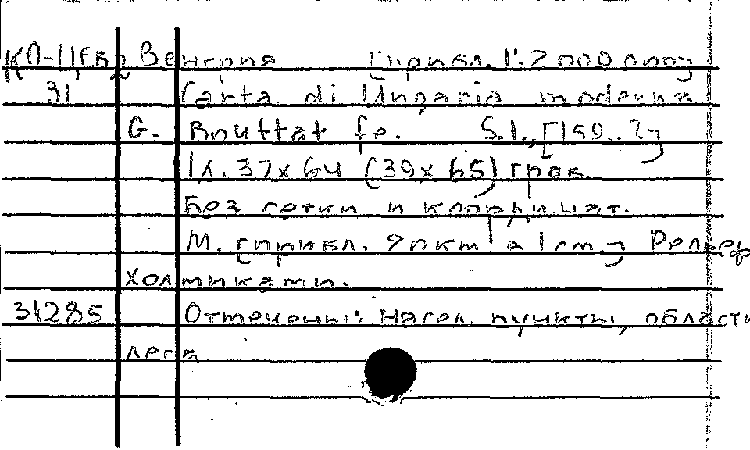 Венгрия [прибл. 1:2 000 000]
31 Carta di Ungaria moderna
G. Bouttat fe. S.l., [159.?]
1л. 37x64 (39x65) грав.
Без сетки и координат.
М. [прибл. 20км в 1см.] Рельеф
холмиками.
31285 Отмечены: насел. пункты, области
леса